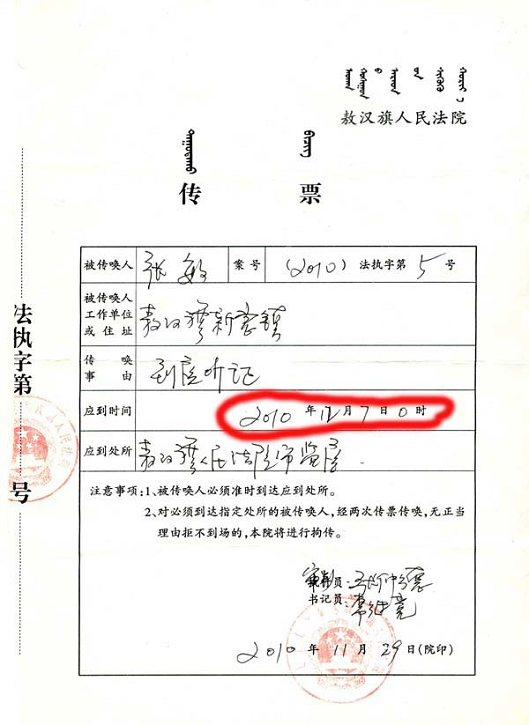 敖汉旗人民法院
传 票
被传唤人 张敏 案号 (2010) 法执字第 5 号
被传唤人工作单位或住址 敖汉旗新惠镇
传唤事由 到庭听证
应到时间 2010 年 12 月 7 日 0 时
应到处所 敖汉旗人民法院审监庭
注意事项:1、被传唤人必须准时到达应到处所。
2、对必须到达指定处所的被传唤人,经两次传票传唤,无正当
理由拒不到场的,本院将进行拘传。
书记员:
2010 年 11 月 29 日(院印)
法执字第 号